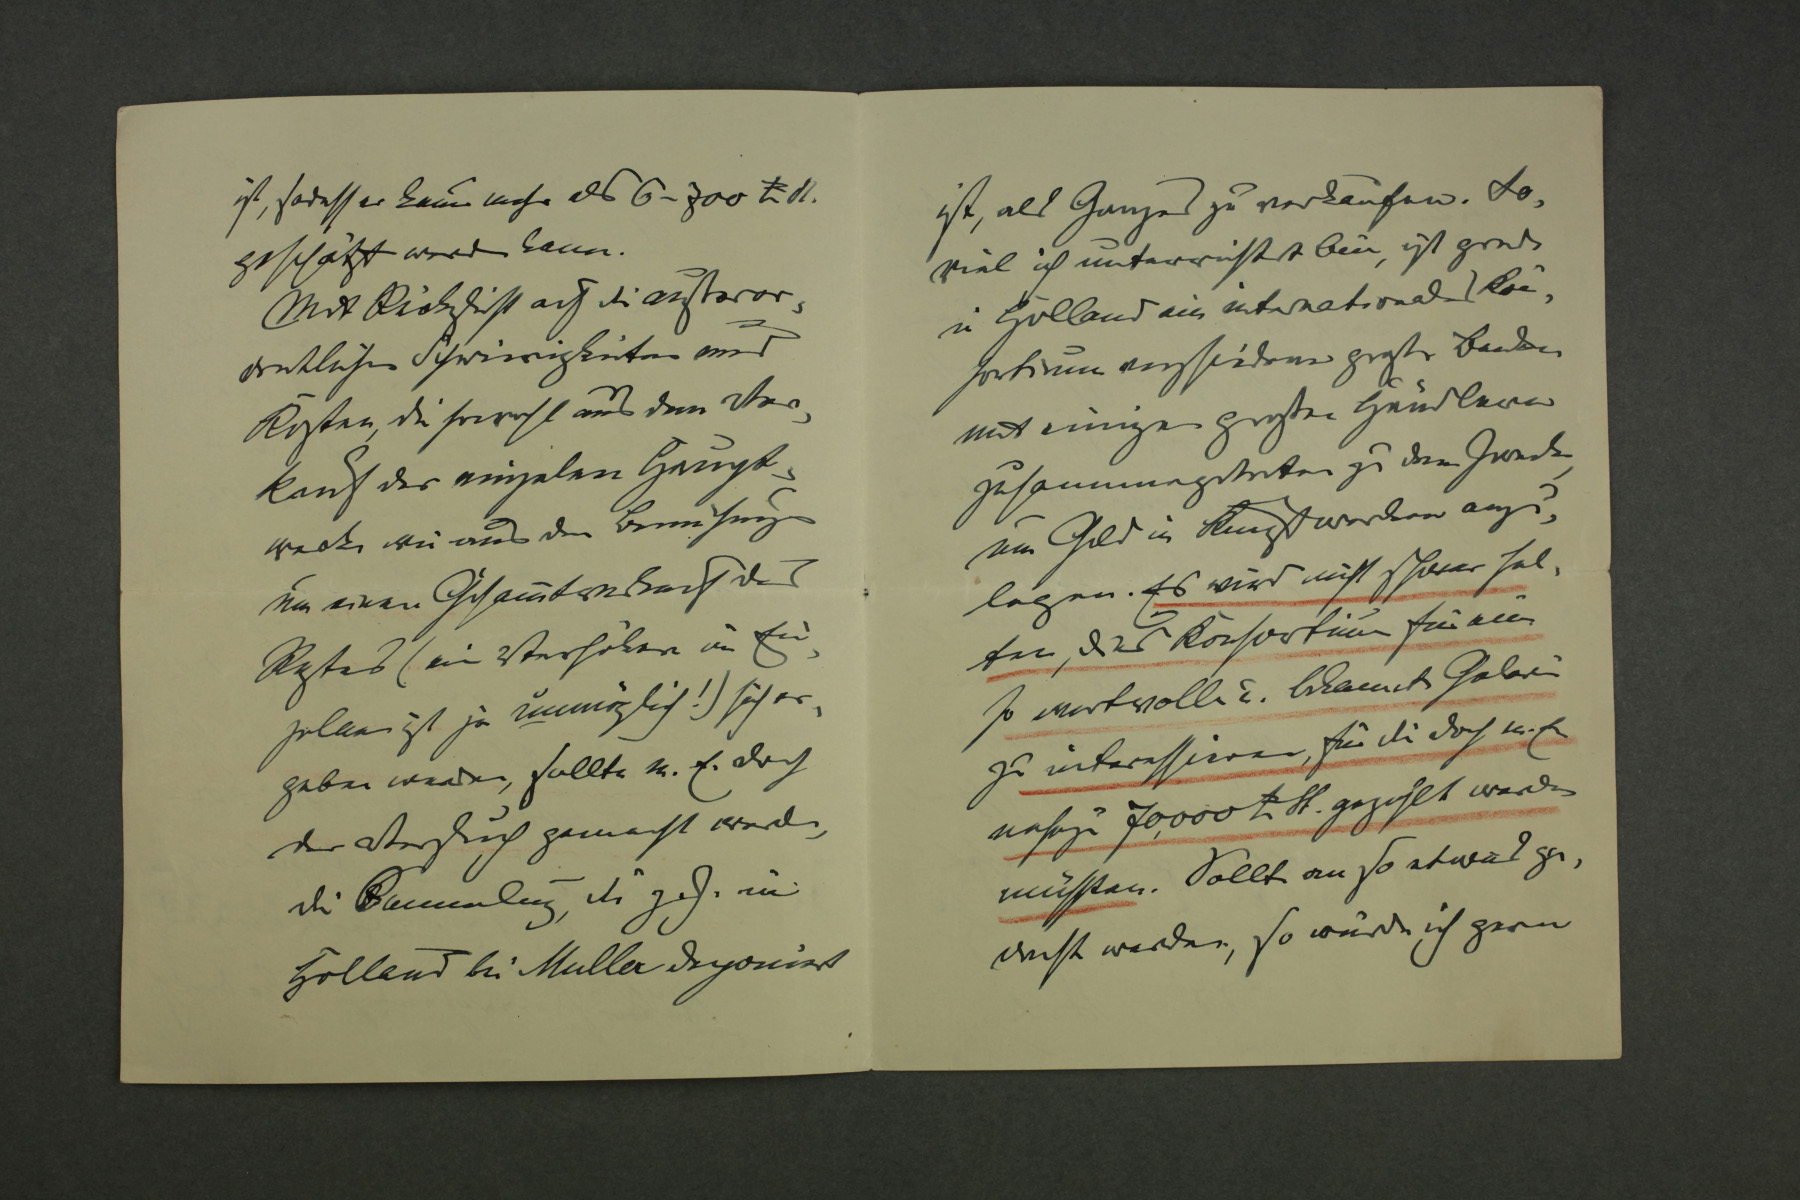 ist, sodass er kaum mehr als 6-700 t M.
geschätzt werden kann.
Mit Rücksicht auf die ausseror-
dentlichen Schwierigkeiten und
Kosten, die sowohl aus dem Ver-
kauf der einzelnen Haupt-
werke wie aus den Bemühungen
um einen Gesamtverkauf des
Restes (ein Verhökern im Ein-
zelnen ist ja unmöglich!) sich er-
geben werden, sollte m. E. doch
der Versuch gemacht werden,
die Sammlung, die z. Z. in
Holland bei Muller deponiert
ist, als Ganzes zu verkaufen. So-
viel ich unterrichtet bin, ist grade
in Holland ein internationales Kon-
sortium verschiedener grosser Banken
mit einigen grossen Händlern
zusammengetreten zu dem Zwecke,
um Geld in Kunstwerken anzu-
legen. Es wird nicht schwer hal-
ten, das Konsortium für eine
so wertvolle u. bekannte Galerie
zu interessieren, für die doch m. E.
nahezu 70,000 t M. gezahlt werden
müssten. Sollte an so etwas ge-
dacht werden, so würde ich gern